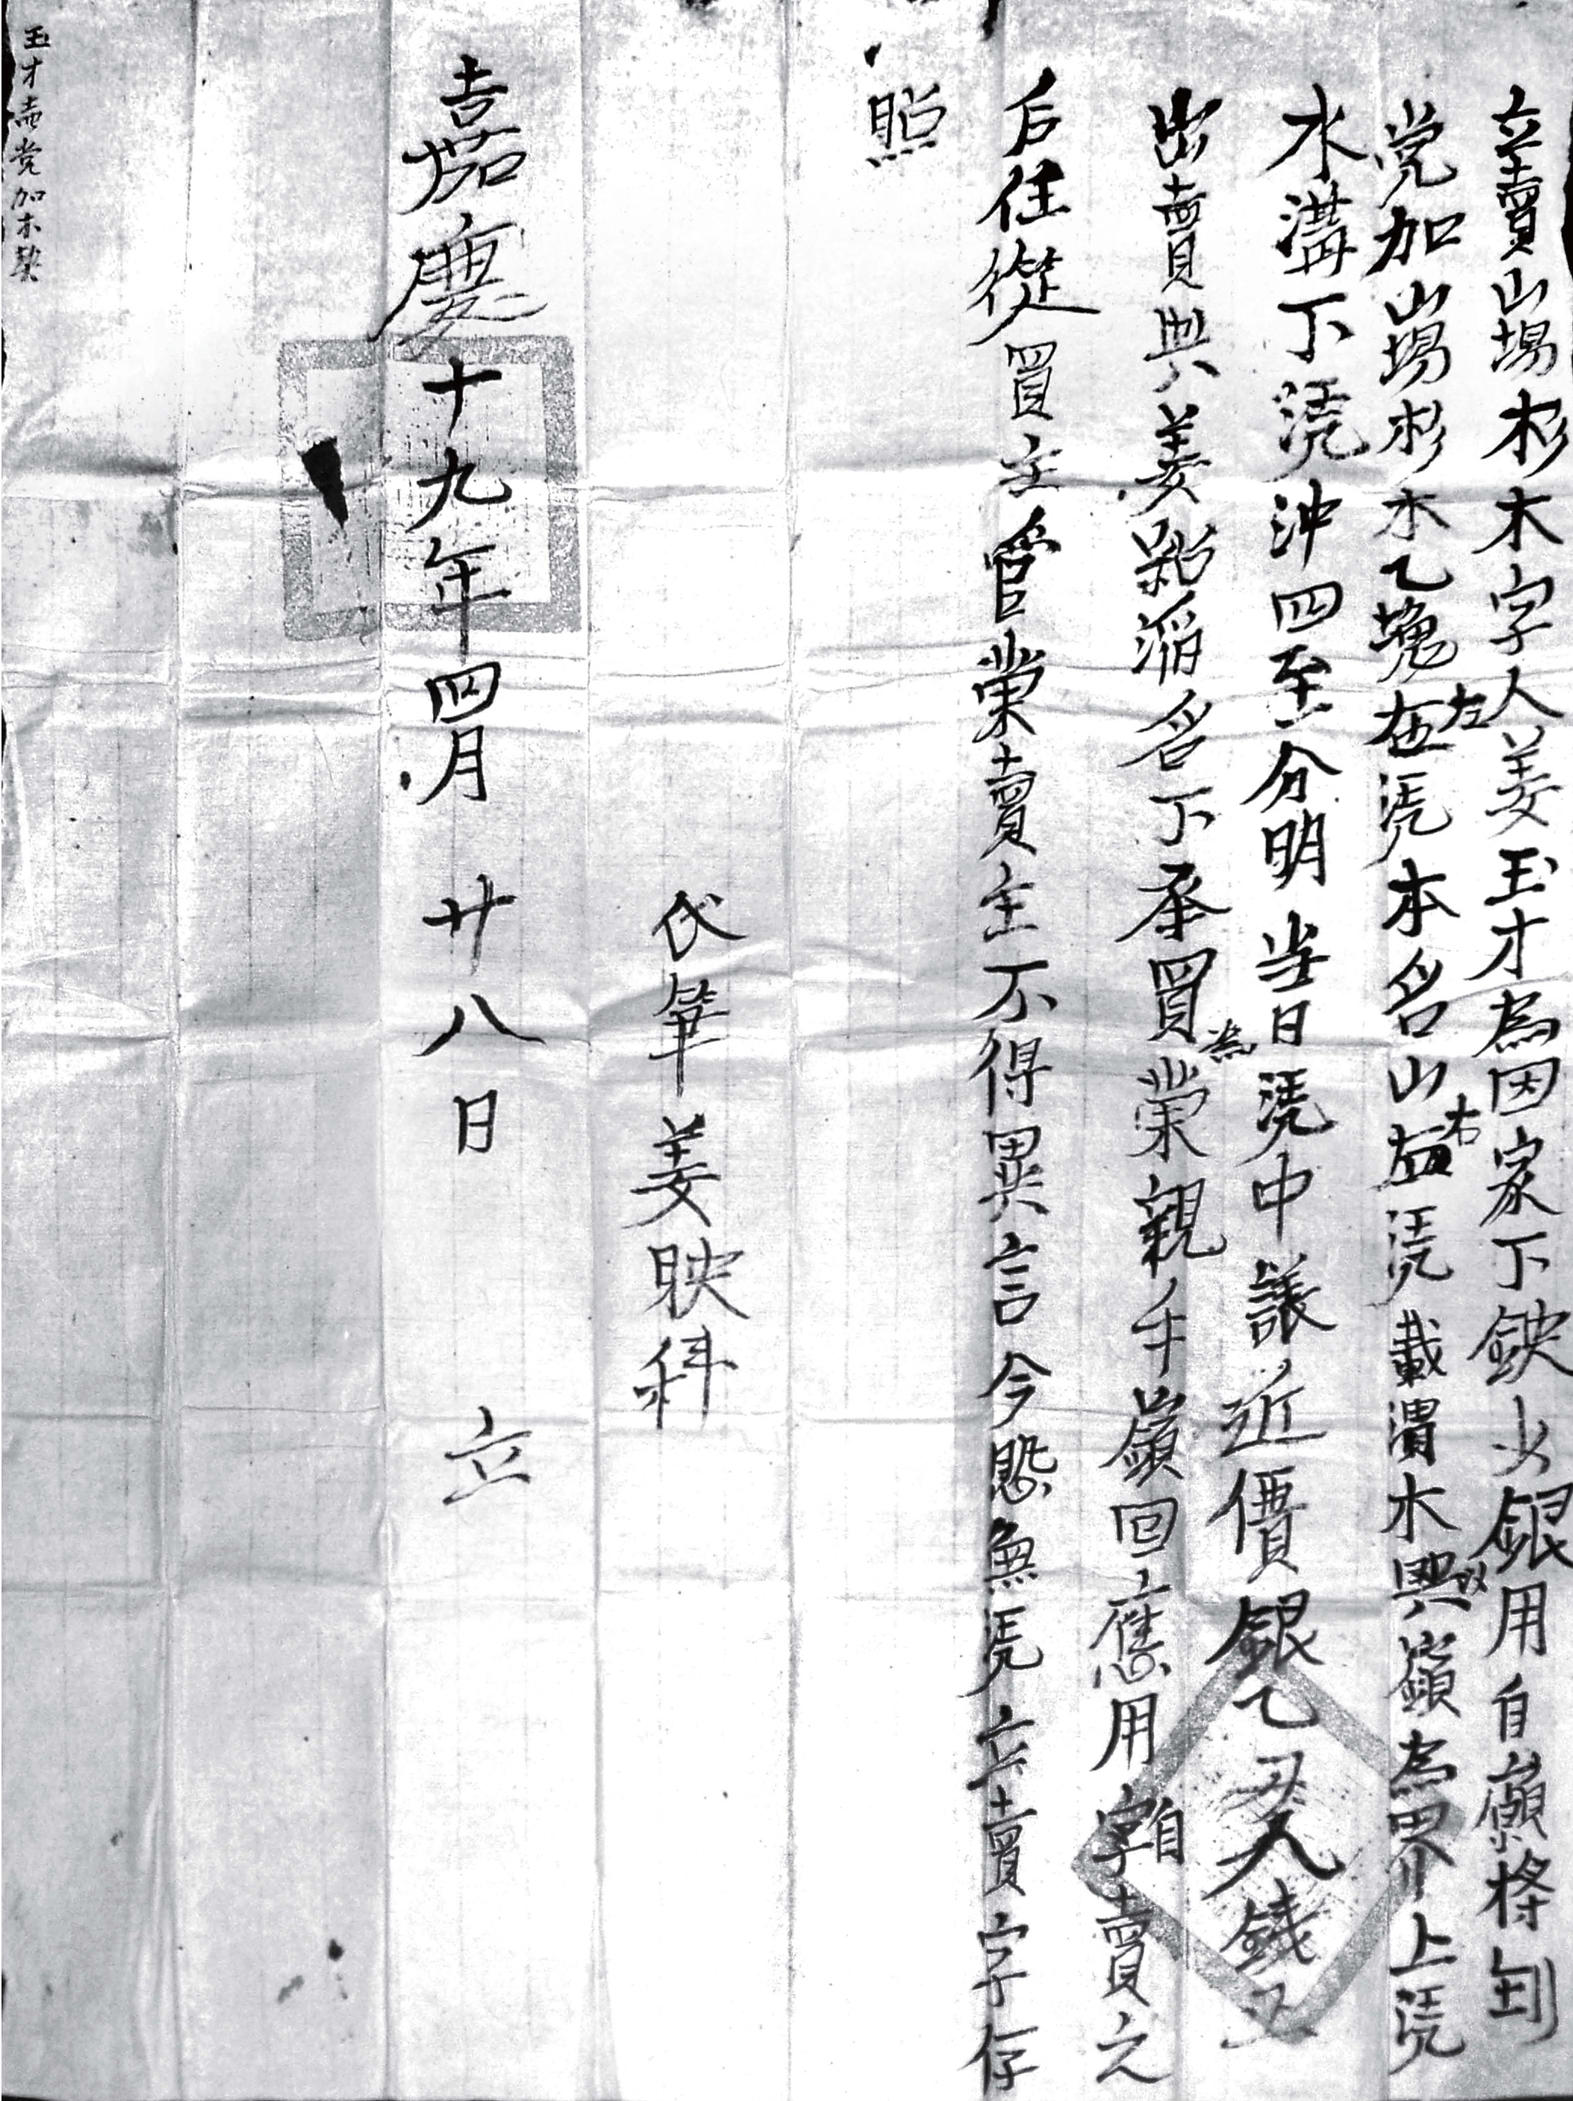 立賣山塲杉木字人姜玉才為因家下缺少銀用自願將到
党加山塲杉木乙塊左凴本名山右凴載渭木與以嶺為界上凴
水溝下凴沖四至分明當日凴中議近價銀乙兩八錢正
出賣與姜紹滔名下承買為業親手嶺回應用字自賣之
后任從買主管業賣主不得異言今恐無凴立賣字存
照
代筆姜映科
嘉慶十九年四月廿八日 立
玉才賣党加木契